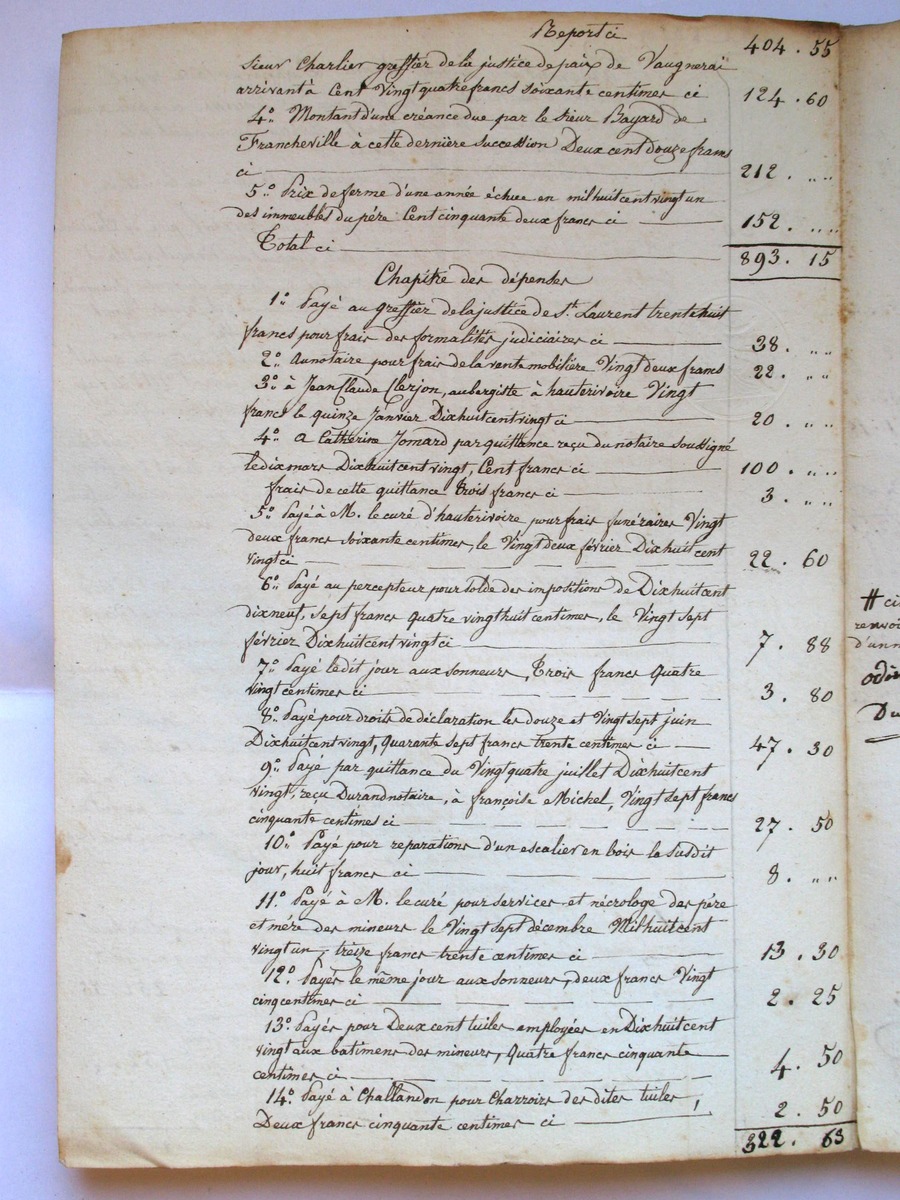 Report ci 404 . 55
sieur Charlier greffier de la justice de paix de Vaugneraï
arrivant à Cent Vingt quatre francs soixante centimes ci 124 . 60
4.° Montant d'une créance due par le sieur Bayard de
Francheville à cette dernière succession Deux cent douze francs
ci 212 . " "
5.° Prix de ferme d'une année échue en mil huit cent vingt un
des immeubles du père Cent cinquante deux francs ci 152 . " "
Total ci 893 . 15
Chapitre des dépenses
1.° Payé au greffier de la justice de St. Laurent trente huit
francs pour frais des formalités judiciaires ci 38 . " "
2.° Au notaire pour frais de la vente mobilière Vingt deux francs 22 . " "
3.° à Jean Claude Clerjon, aubergiste à hauterivoire Vingt
francs le quinze Janvier Dix huit cent vingt ci 20 . " "
4.° a Catherine Jomard par quittance reçu du notaire soussigné
le dix mars Dix huit cent vingt, Cent francs ci 100 . " "
frais de cette quittance trois francs ci 3 . " "
5.° Payé à M. le curé d'hauterivoire pour frais funéraires Vingt
deux francs soixante centimes, le Vingt deux février Dix huit cent
vingt ci 22 . 60
6.° Payé au percepteur pour solde des impositions de Dix huit cent
dix neuf, sept francs quatre vingt huit centimes, le Vingt sept
février Dix huit cent vingt ci 7 . 88
7.° Payé le dit jour aux sonneurs, Trois francs quatre
vingt centimes ci 3 . 80
8.° Payé pour droits de déclaration les douze et Vingt sept juin
Dix huit cent vingt, quarante sept francs trente centimes ci 47 . 30
9.° Payé par quittance du Vingt quatre juillet Dix huit cent
vingt, reçu Durand notaire, à françoise Michel, Vingt sept francs
cinquante centimes ci 27 . 50
10.° Payé pour reparations d'un escalier en bois le susdit
jour, huit francs ci 8 . " "
11.° Payé à M. le curé pour services et nécrologe des père
et mère des mineurs le Vingt sept décembre Mil huit cent
vingt un, treize francs trente centimes ci 13 . 30
12.° Payés le même jour aux sonneurs, deux francs Vingt
cinq centimes ci 2 . 25
13.° Payés pour Deux cent tuiles employées en Dix huit cent
vingt aux batimens des mineurs, Quatre francs cinquante
centimes ci 4 . 50
14.° Payé à Challandon pour Charroirs des dites tuiles,
Deux francs cinquante centimes ci 2 . 50
322 . 63
renvoi